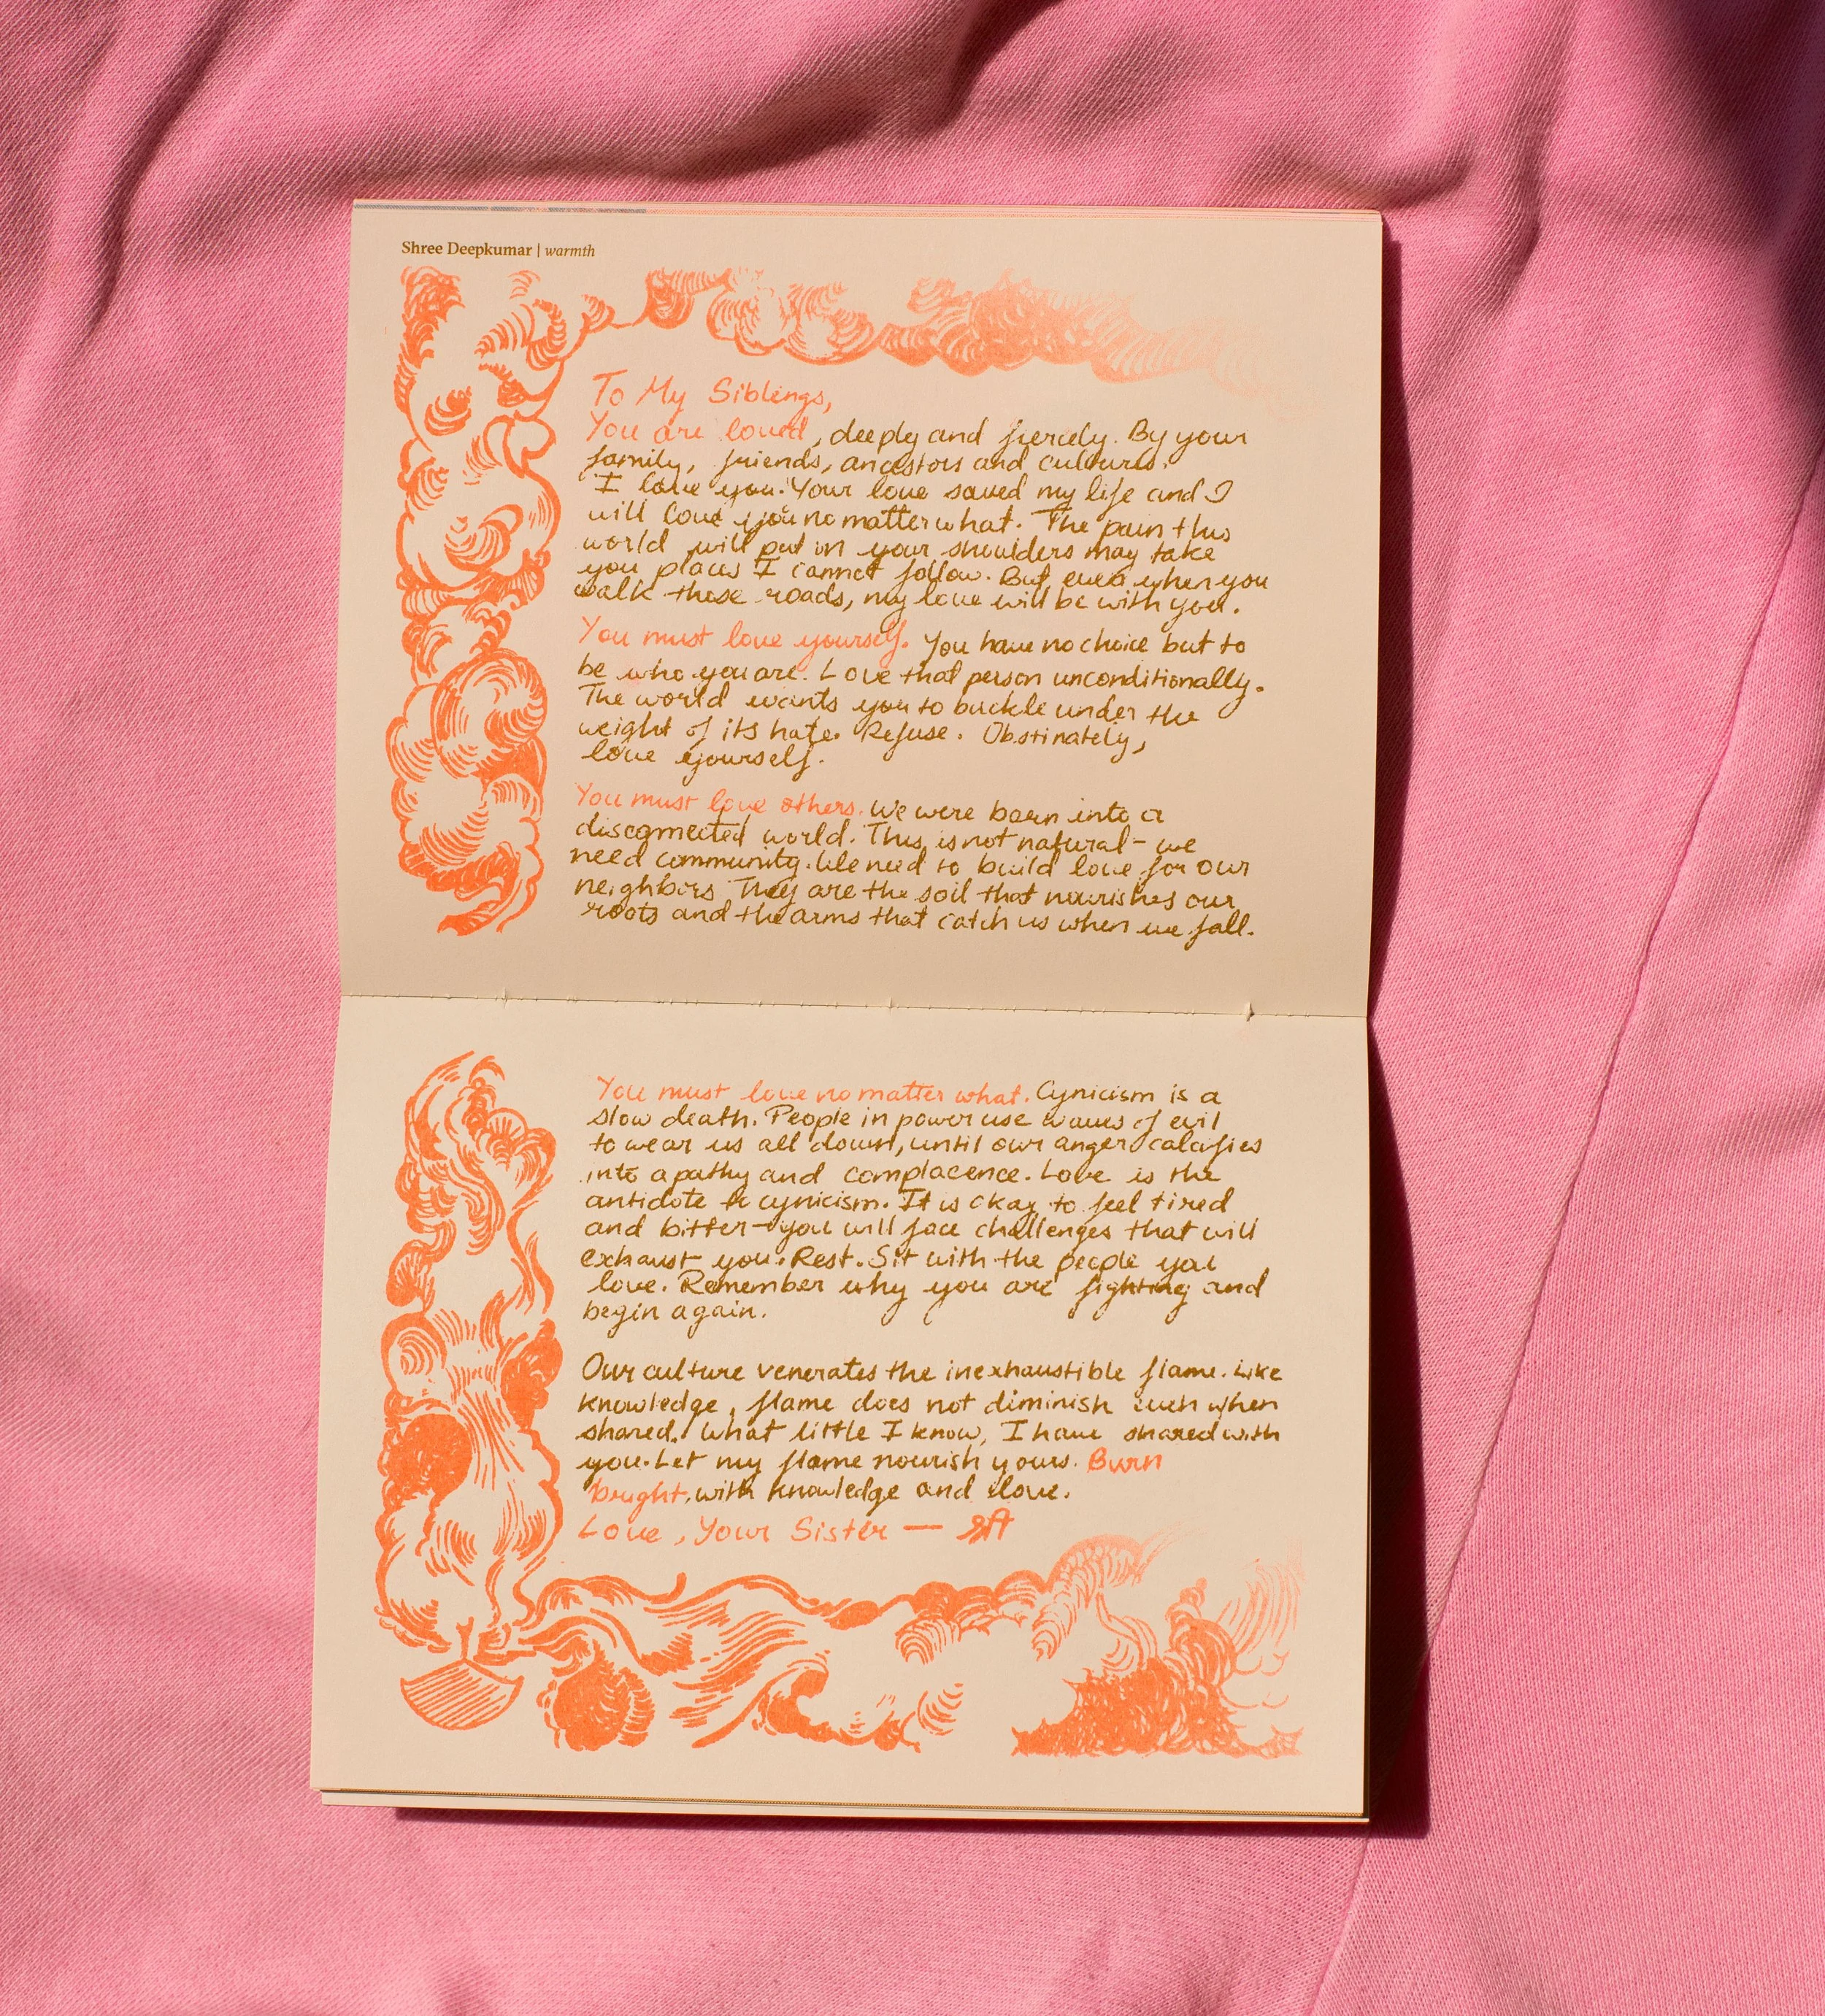 Shree Deepkumar | warmth
To My Siblings,
You are loved, deeply and fiercely. By your
family, friends, ancestors and cultures.
I love you. Your love saved my life and I
will love you no matter what. The pain this
world will put on your shoulders may take
you places I cannot follow. But, even when you
walk those roads, my love will be with you.
You must love yourself. You have no choice but to
be who you are. Love that person unconditionally.
The world wants you to buckle under the
weight of its hate. Refuse. Obstinately,
love yourself.
You must love others. We were born into a
disconnected world. This is not natural - we
need community. We need to build love for our
neighbors They are the soil that nourishes our
roots and the arms that catch us when we fall.
You must love no matter what. Cynicism is a
slow death. People in power use waves of evil
to wear us all down, until our anger calcifies
into apathy and complacence. Love is the
antidote to cynicism. It is okay to feel tired
and bitter - you will face challenges that will
exhaust you. Rest. Sit with the people you
love. Remember why you are fighting and
begin again.
Our culture venerates the inexhaustible flame. Like
knowledge, flame does not diminish even when
shared. What little I know, I have shared with
you. Let my flame nourish yours. Burn
bright, with knowledge and love.
Love, Your Sister —